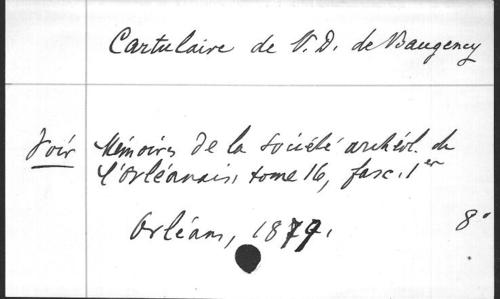 Cartulaire de N. D. de Baugency
Voir Mémoires de la Société archéol. de
l'Orléanais, tome 16, fasc. 1er
Orléans, 1879. 8°